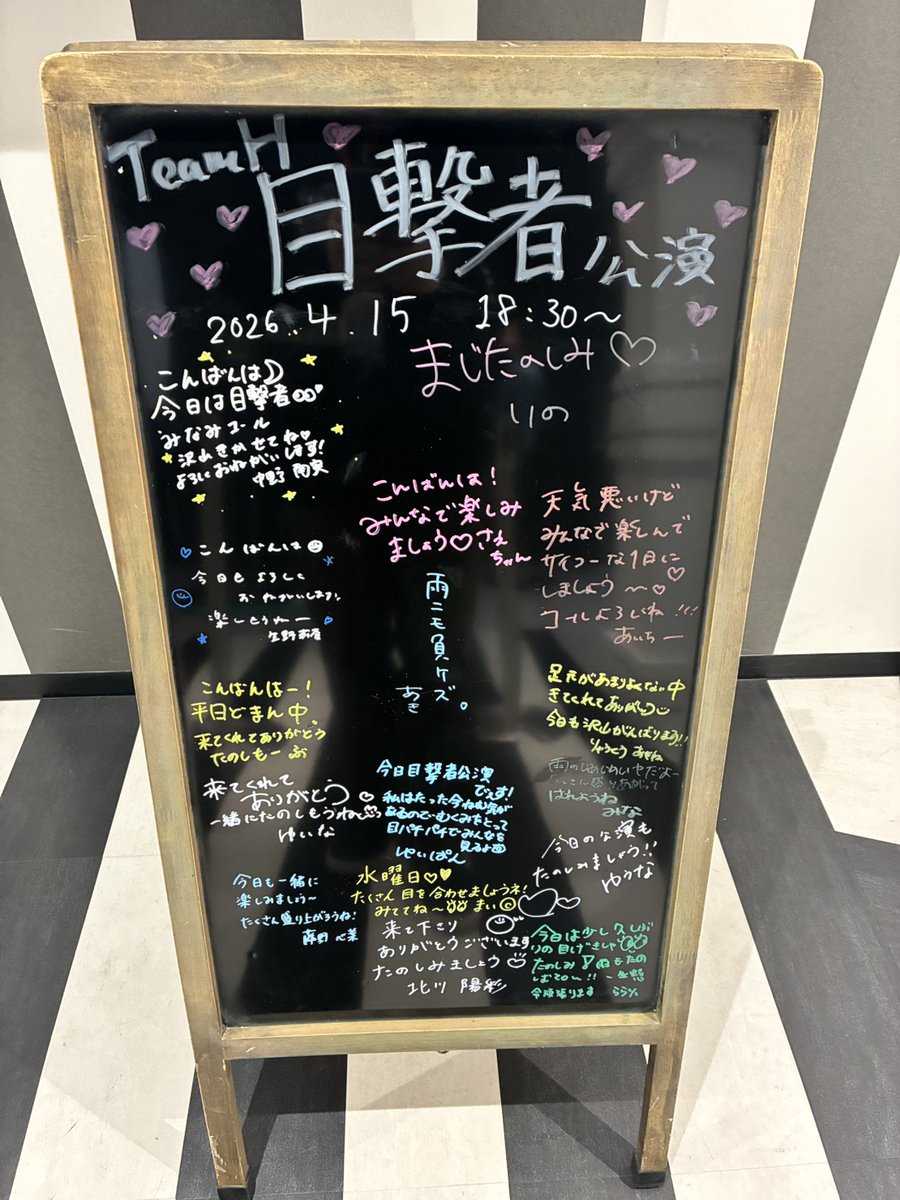 TeamH
目撃者公演
2026.4.15 18:30〜
まじたのしみ♡
りの
こんばんは
今日は目撃者
みなみコール
沢山きかせてね
よろしくおねがいします!
こんばんは!
みんなで楽しみ
ましょう♡さえ
ちゃん
天気悪いけど
みんなで楽しんで
サイコーな1日に
しましょう〜♡
コールよろしくね!!!
あいちー
こんばんは
今日もよろしく
おねがいします!
楽しもうねー
雨ニモ負ケズ。
あき
こんばんはー!
平日どまん中、
来てくれてありがとう
たのしもーぶ
足元があまりよくない中
きてくれてありがとう
今日も沢山がんばりまう!!
りゅうとう
来てくれて
ありがとう♡
一緒にたのしもうねっ
ゆいな
今日目撃者公演
でぇす!
私はたった今ねむ気が
あるので、むくみをとって
目パチパチでみんなを
見るよ
雨のじめじめいやだよー
たくさん盛りあがって
はれようね
みな
今日の公演も
たのしみましょう!!
ゆうな
今日も一緒に
楽しみましょう〜
たくさん盛り上がろうね!
水曜日♡♥
たくさん目を合わせましょうネ!
みててね〜 まい
来て下さり
ありがとうございます
たのしみましょう
北川 陽彩
今日は少し久しぶ
りの目げきしゃ
たのしみ
ららい